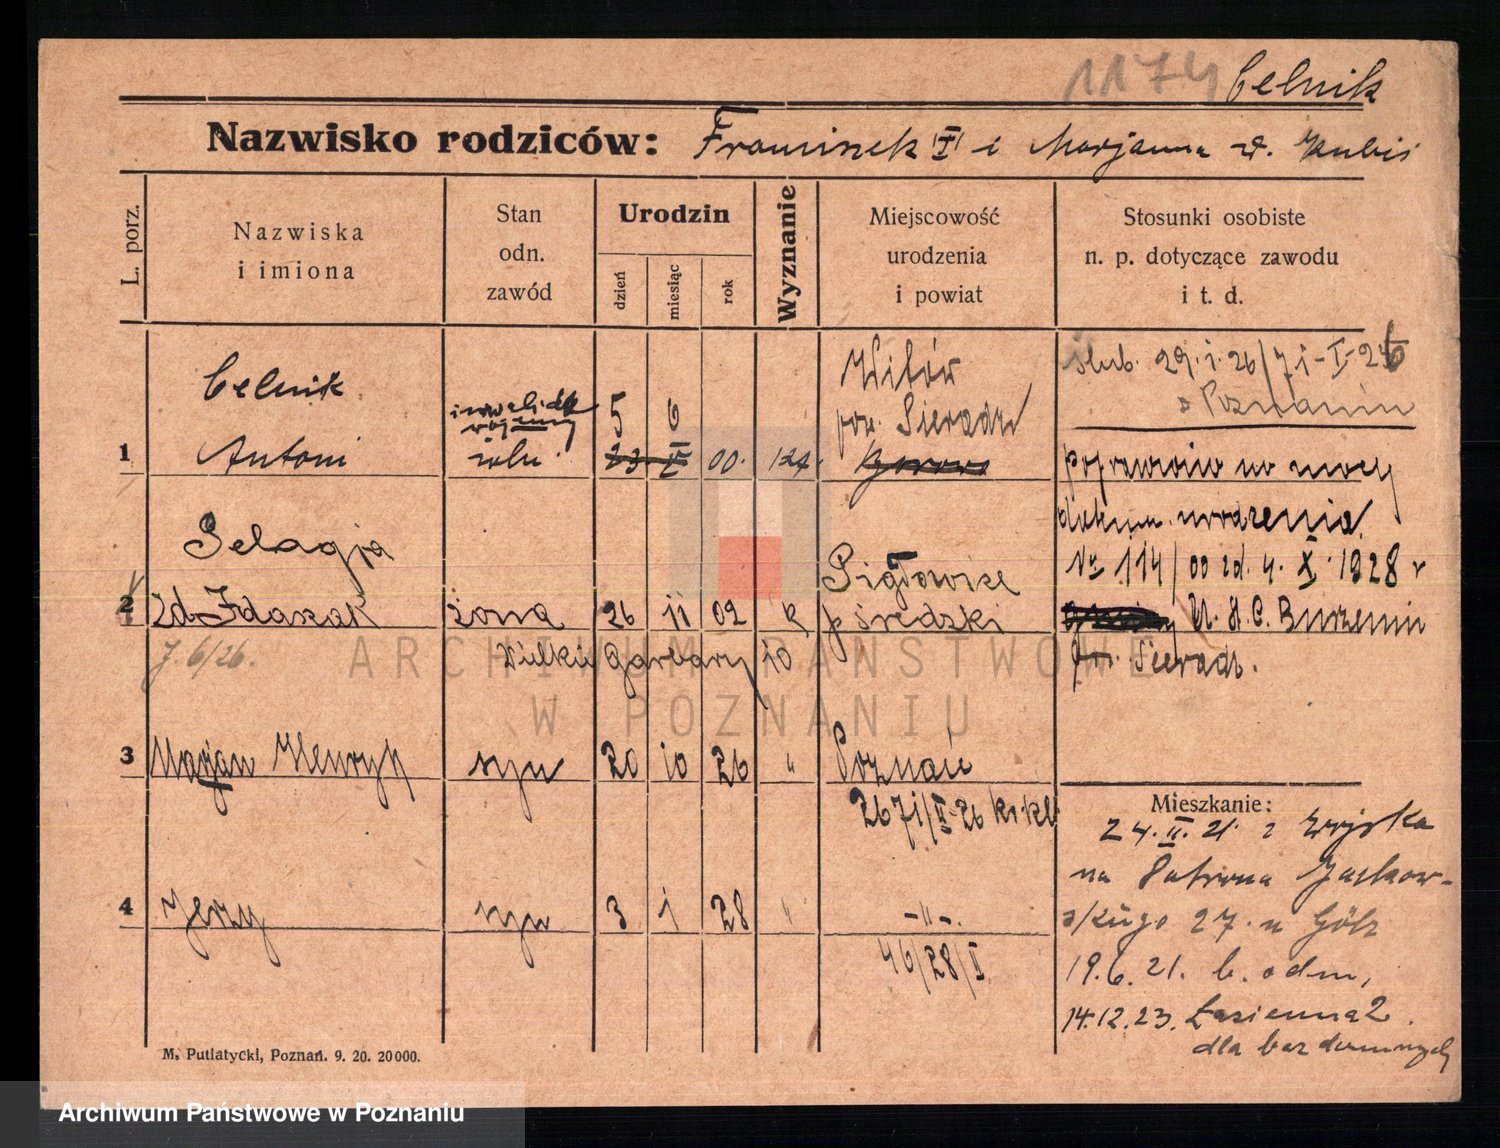 1174 Celnik
Nazwisko rodziców: Franciszek i Marjanna z d. Kubis
L. porz.
Nazwiska
i imiona
Stan
odn.
zawód
Urodzin
dzień
miesiąc
rok
Wyznanie
Miejscowość
urodzenia
i powiat
Stosunki osobiste
n. p. dotyczące zawodu
i t. d.
1
Celnik
Antoni
inwalida
wojenny
roln.
5 6
23. V 00.
Witów
pow. Sieradz
Borowo
ślub. 29.1.26/71-I-26
z Poznania
poprawiono na mocy
dokum. urodzenia
Nr 114/00 zd. 4. X. 1928 r
U. S. C. Burzenin
pow. Sieradz.
2
Pelagja
zd. Idaszak
żona
26 11 02 k
Pigłowice
p średzki
7. 6/26.
Wielkie Garbary 10
3
Marjan Henryk
syn
20 10 26 "
Poznań
2671/V-26 kr. kl.
4
Jerzy
syn
3 1 28 "
-"-
46/28/I
Mieszkanie:
24. II. 21. z wojska
na Patrona Jackow-
skiego 27. u Gölz
19.6.21. b. odm,
14.12.23. Łazienna 2.
dla bezdomnych
M. Putiatycki, Poznań. 9. 20. 20000.
ARCHIWUM PAŃSTWOWE
W POZNANIU
Archiwum Państwowe w Poznaniu